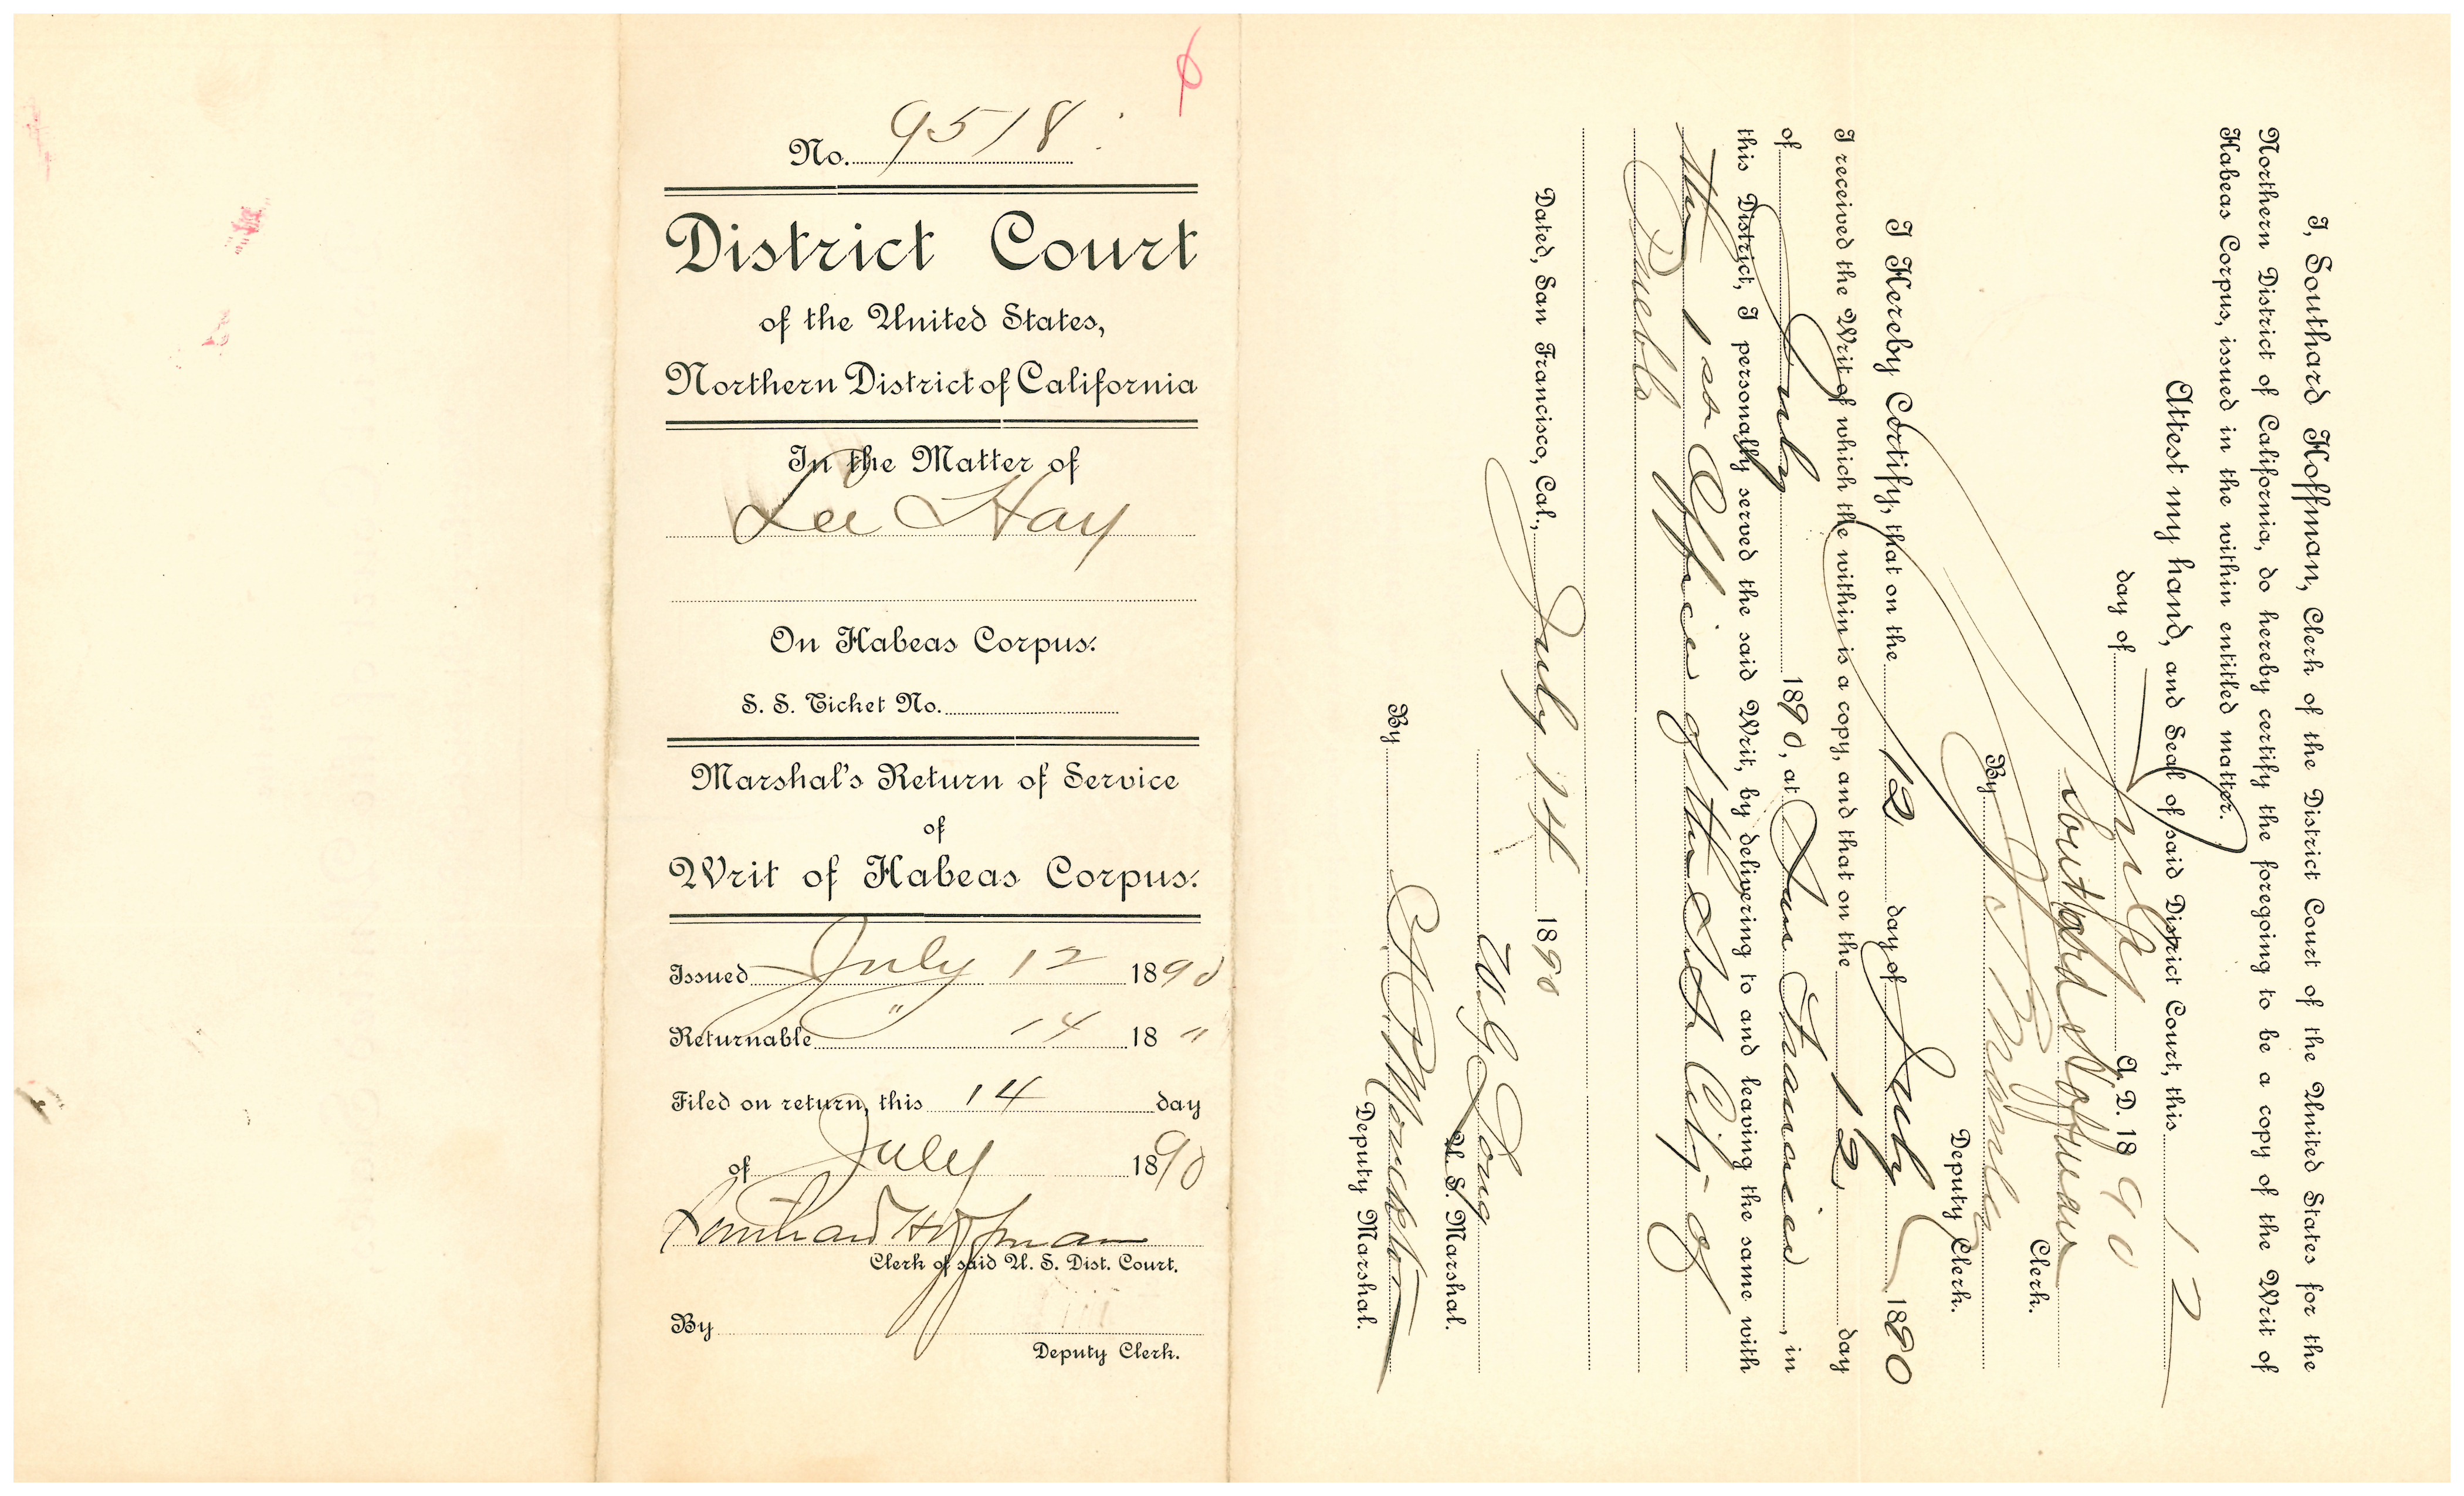 6
No. 9518
District Court
of the United States,
Northern District of California
In the Matter of
Lee Hay
On Habeas Corpus.
S. S. Ticket No.
Marshal's Return of Service
of
Writ of Habeas Corpus.
Issued July 12 1890
Returnable " 14 18 "
Filed on return, this 14 day
of July 1890
Southard Hoffman
Clerk of said U. S. Dist. Court.
By
Deputy Clerk.
I, Southard Hoffman, Clerk of the District Court of the United States for the
Northern District of California, do hereby certify the foregoing to be a copy of the Writ of
Habeas Corpus, issued in the within entitled matter.
Attest my hand, and Seal of said District Court, this 12
day of July A. D. 1890
Southard Hoffman
Clerk.
By
Deputy Clerk.
I Hereby Certify, that on the 12 day of July 1890
I received the Writ of which the within is a copy, and that on the 12 day
of July 1890, at San Francisco, in
this District, I personally served the said Writ, by delivering to and leaving the same with
the 1st Officer of the S S City of
Puebla
Dated, San Francisco, Cal., July 14 1890
W G Long
U. S. Marshal.
By
Deputy Marshal.